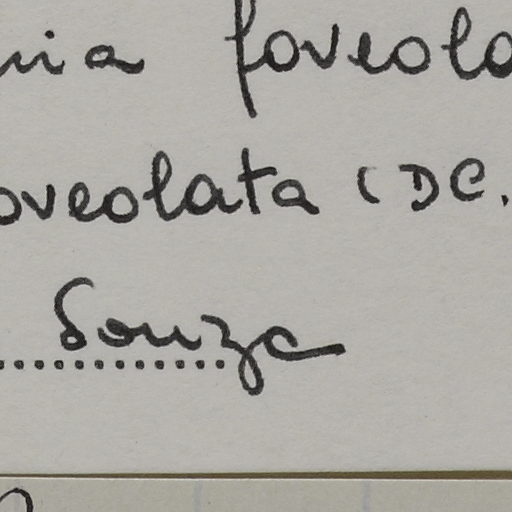 nia foveola
oveolata (DC.
Souza